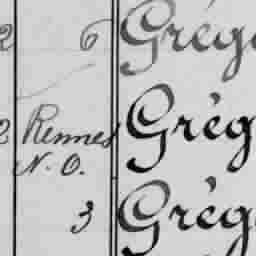 2 6 Grég
2 Rennes Grég
N. O.
3 Grég